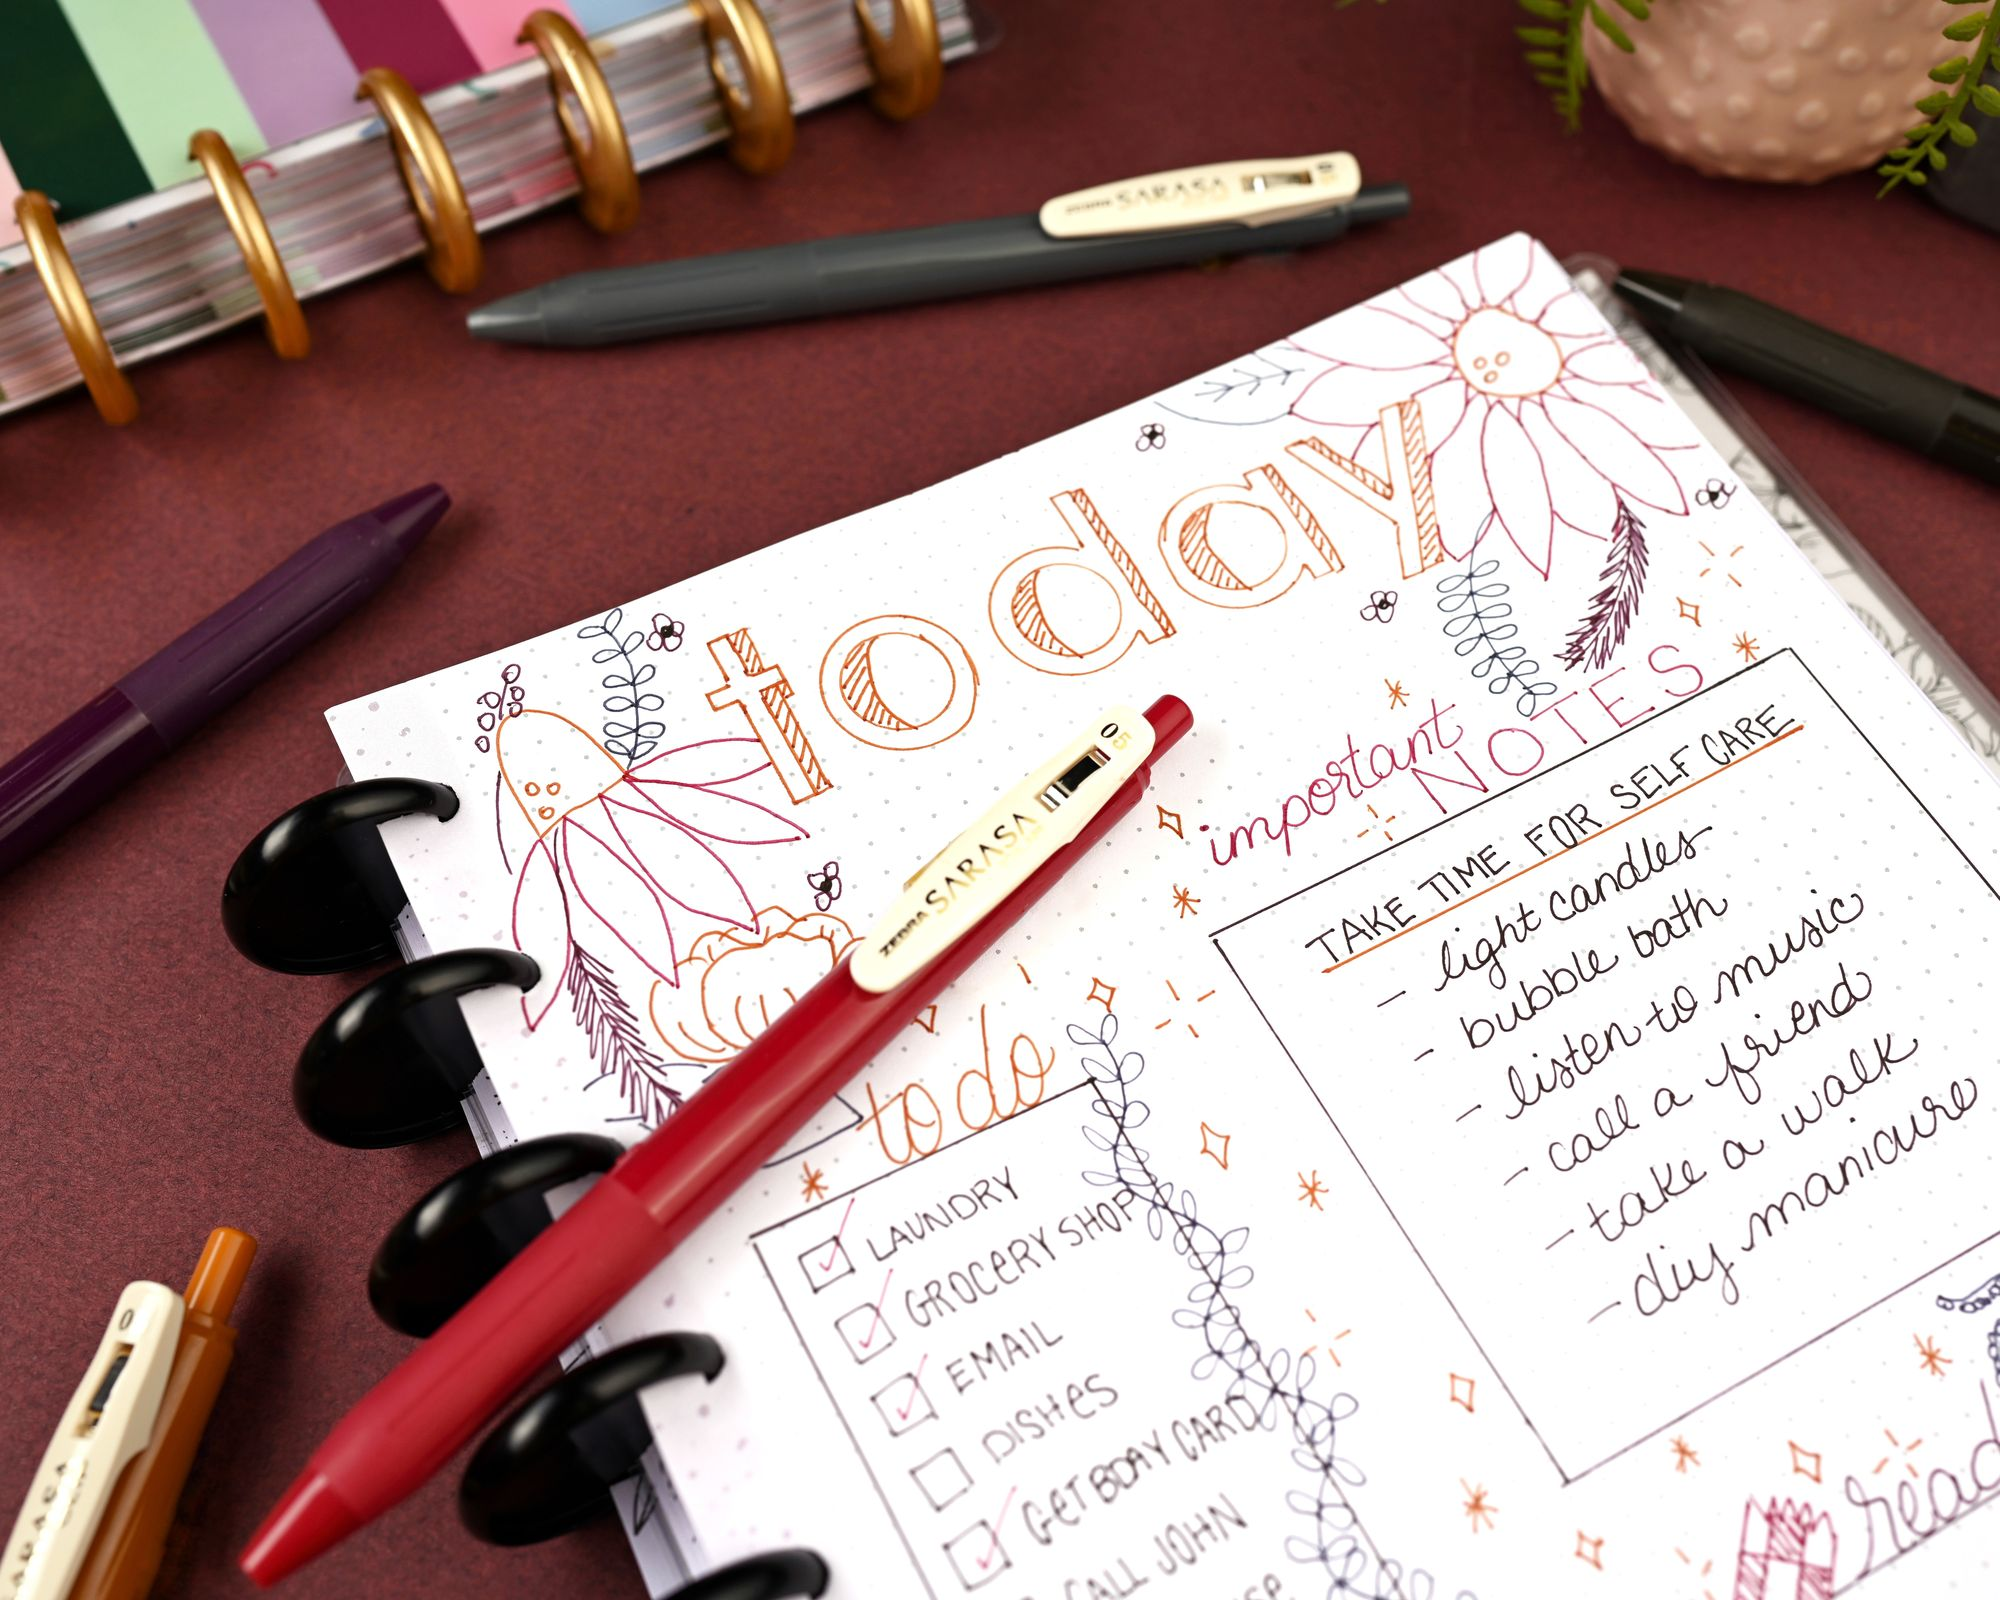 SARASA
0
today
important
NOTES
TAKE TIME FOR SELF CARE
- light candles
- bubble bath
- listen to music
- call a friend
- take a walk
- diy manicure
ZEBRA SARASA 05
to do
LAUNDRY
GROCERY SHOP
EMAIL
DISHES
GET BDAY CARD
CALL JOHN
read
0
SARASA